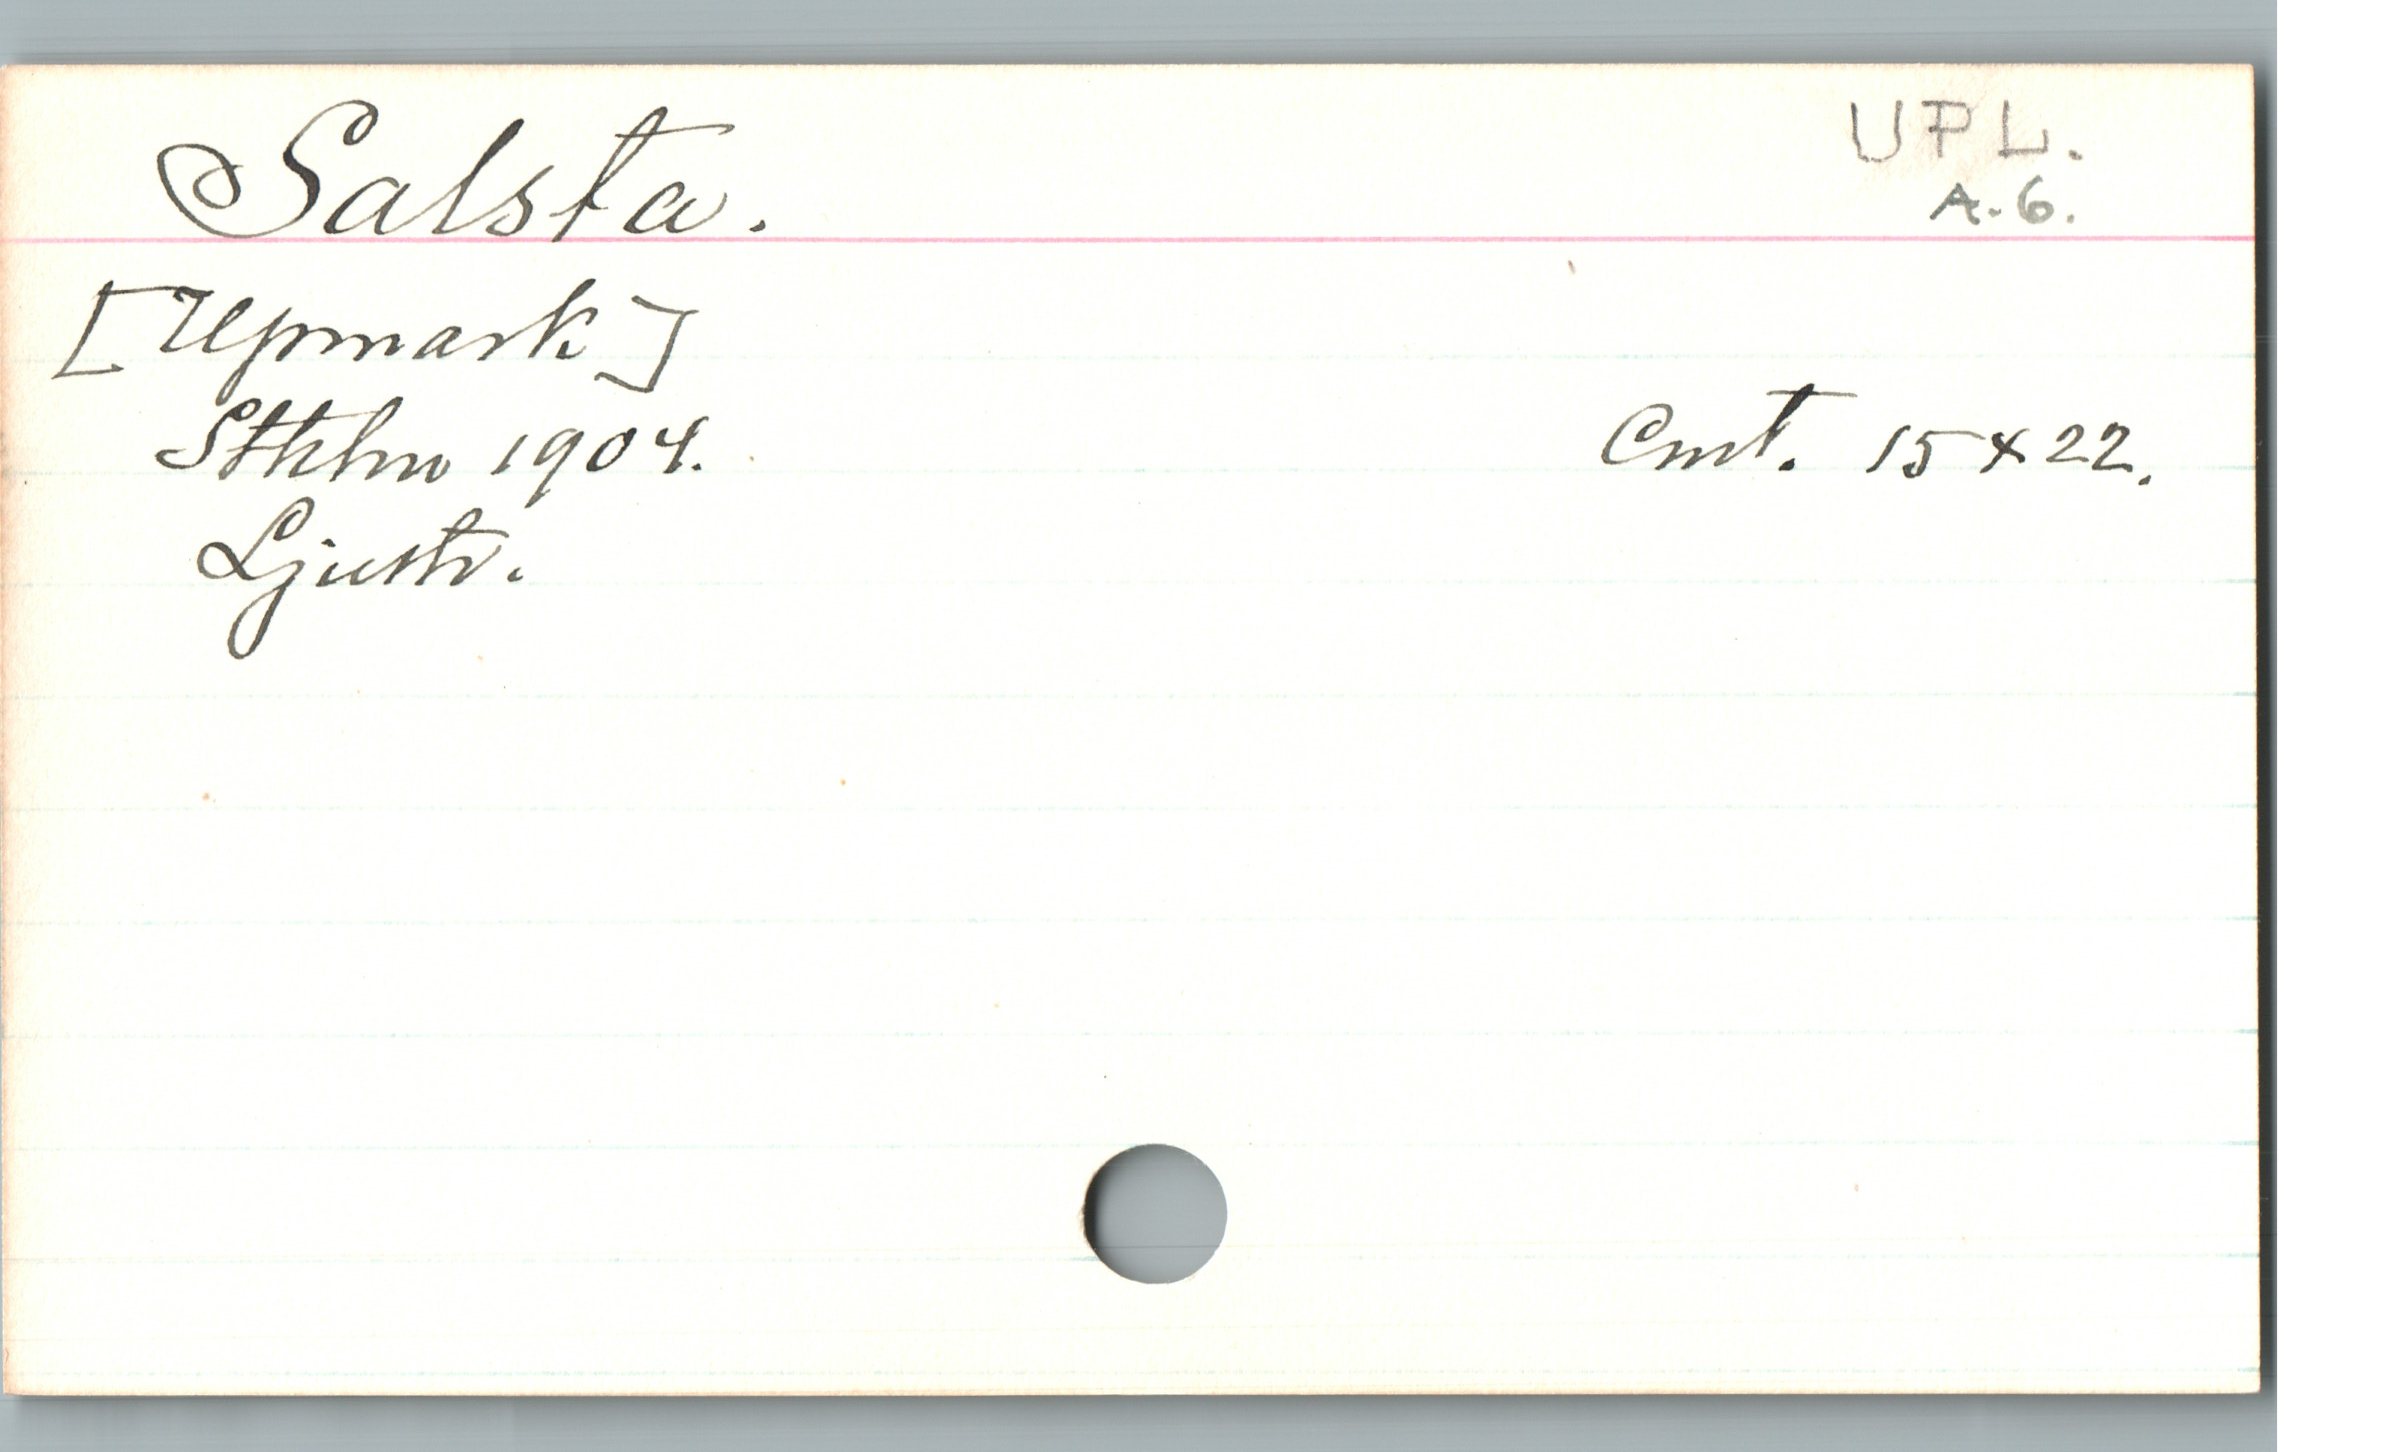 Salsta.
UPL.
A.6.
[Upmark]
Sthlm 1904.
Cmt. 15x22.
Ljustr.